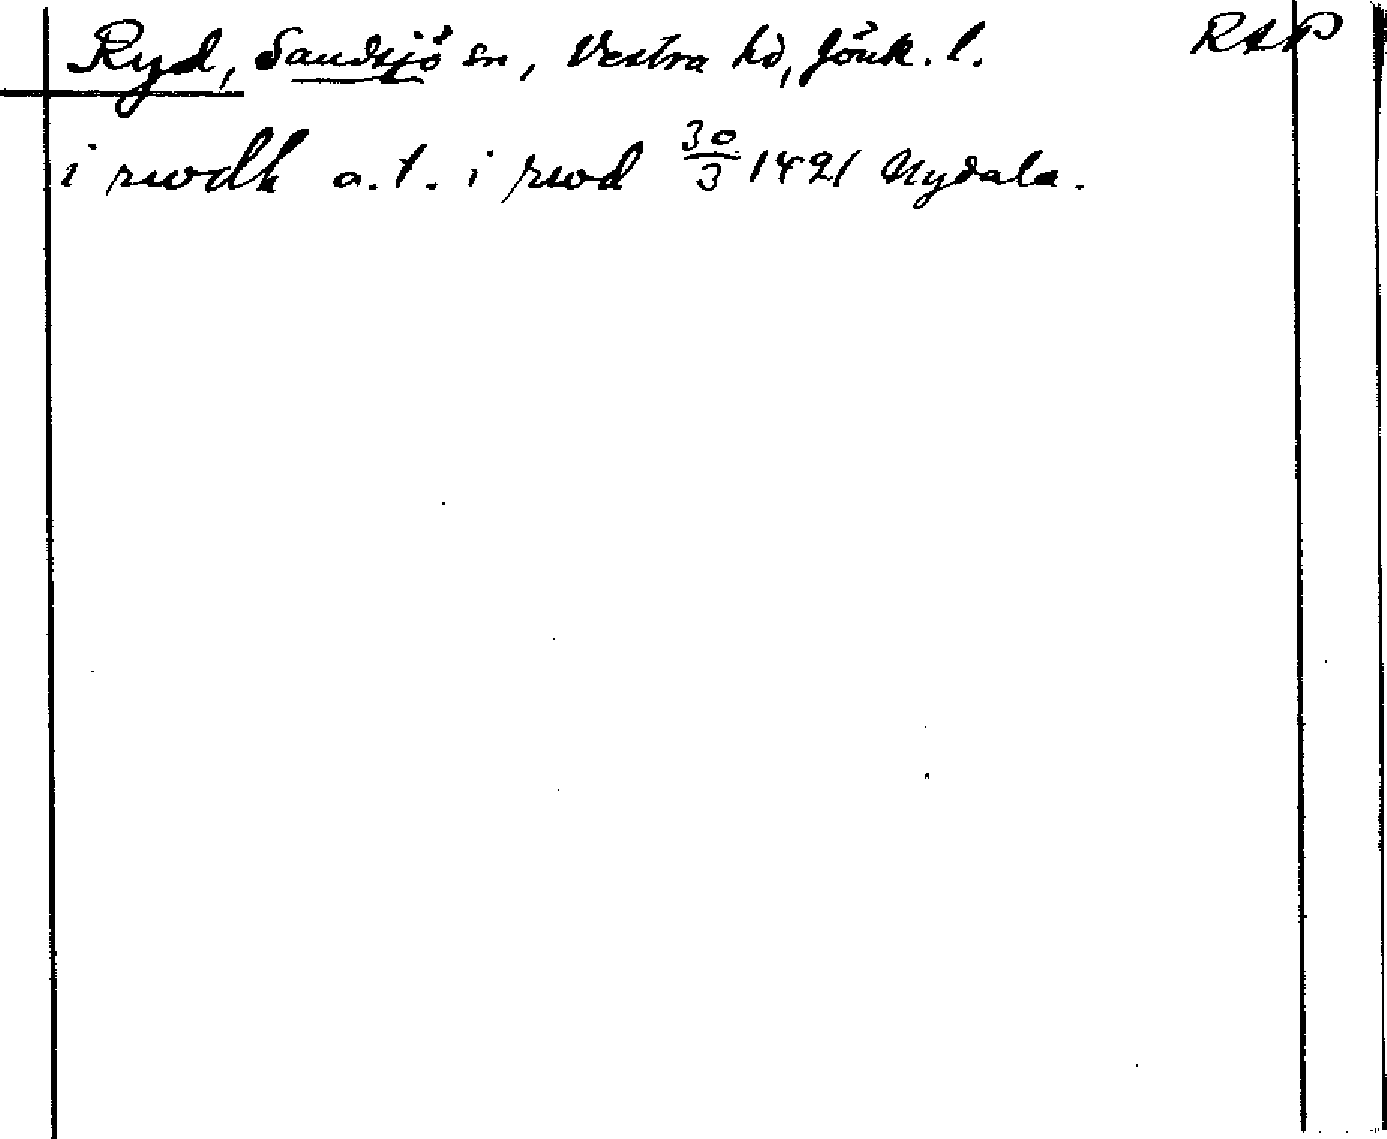 Ryd, Sandsjö sn, Vestra hd, Jönk. l. RAP
i rwdh a. t. i rwd 30/3 1421 Nydala.